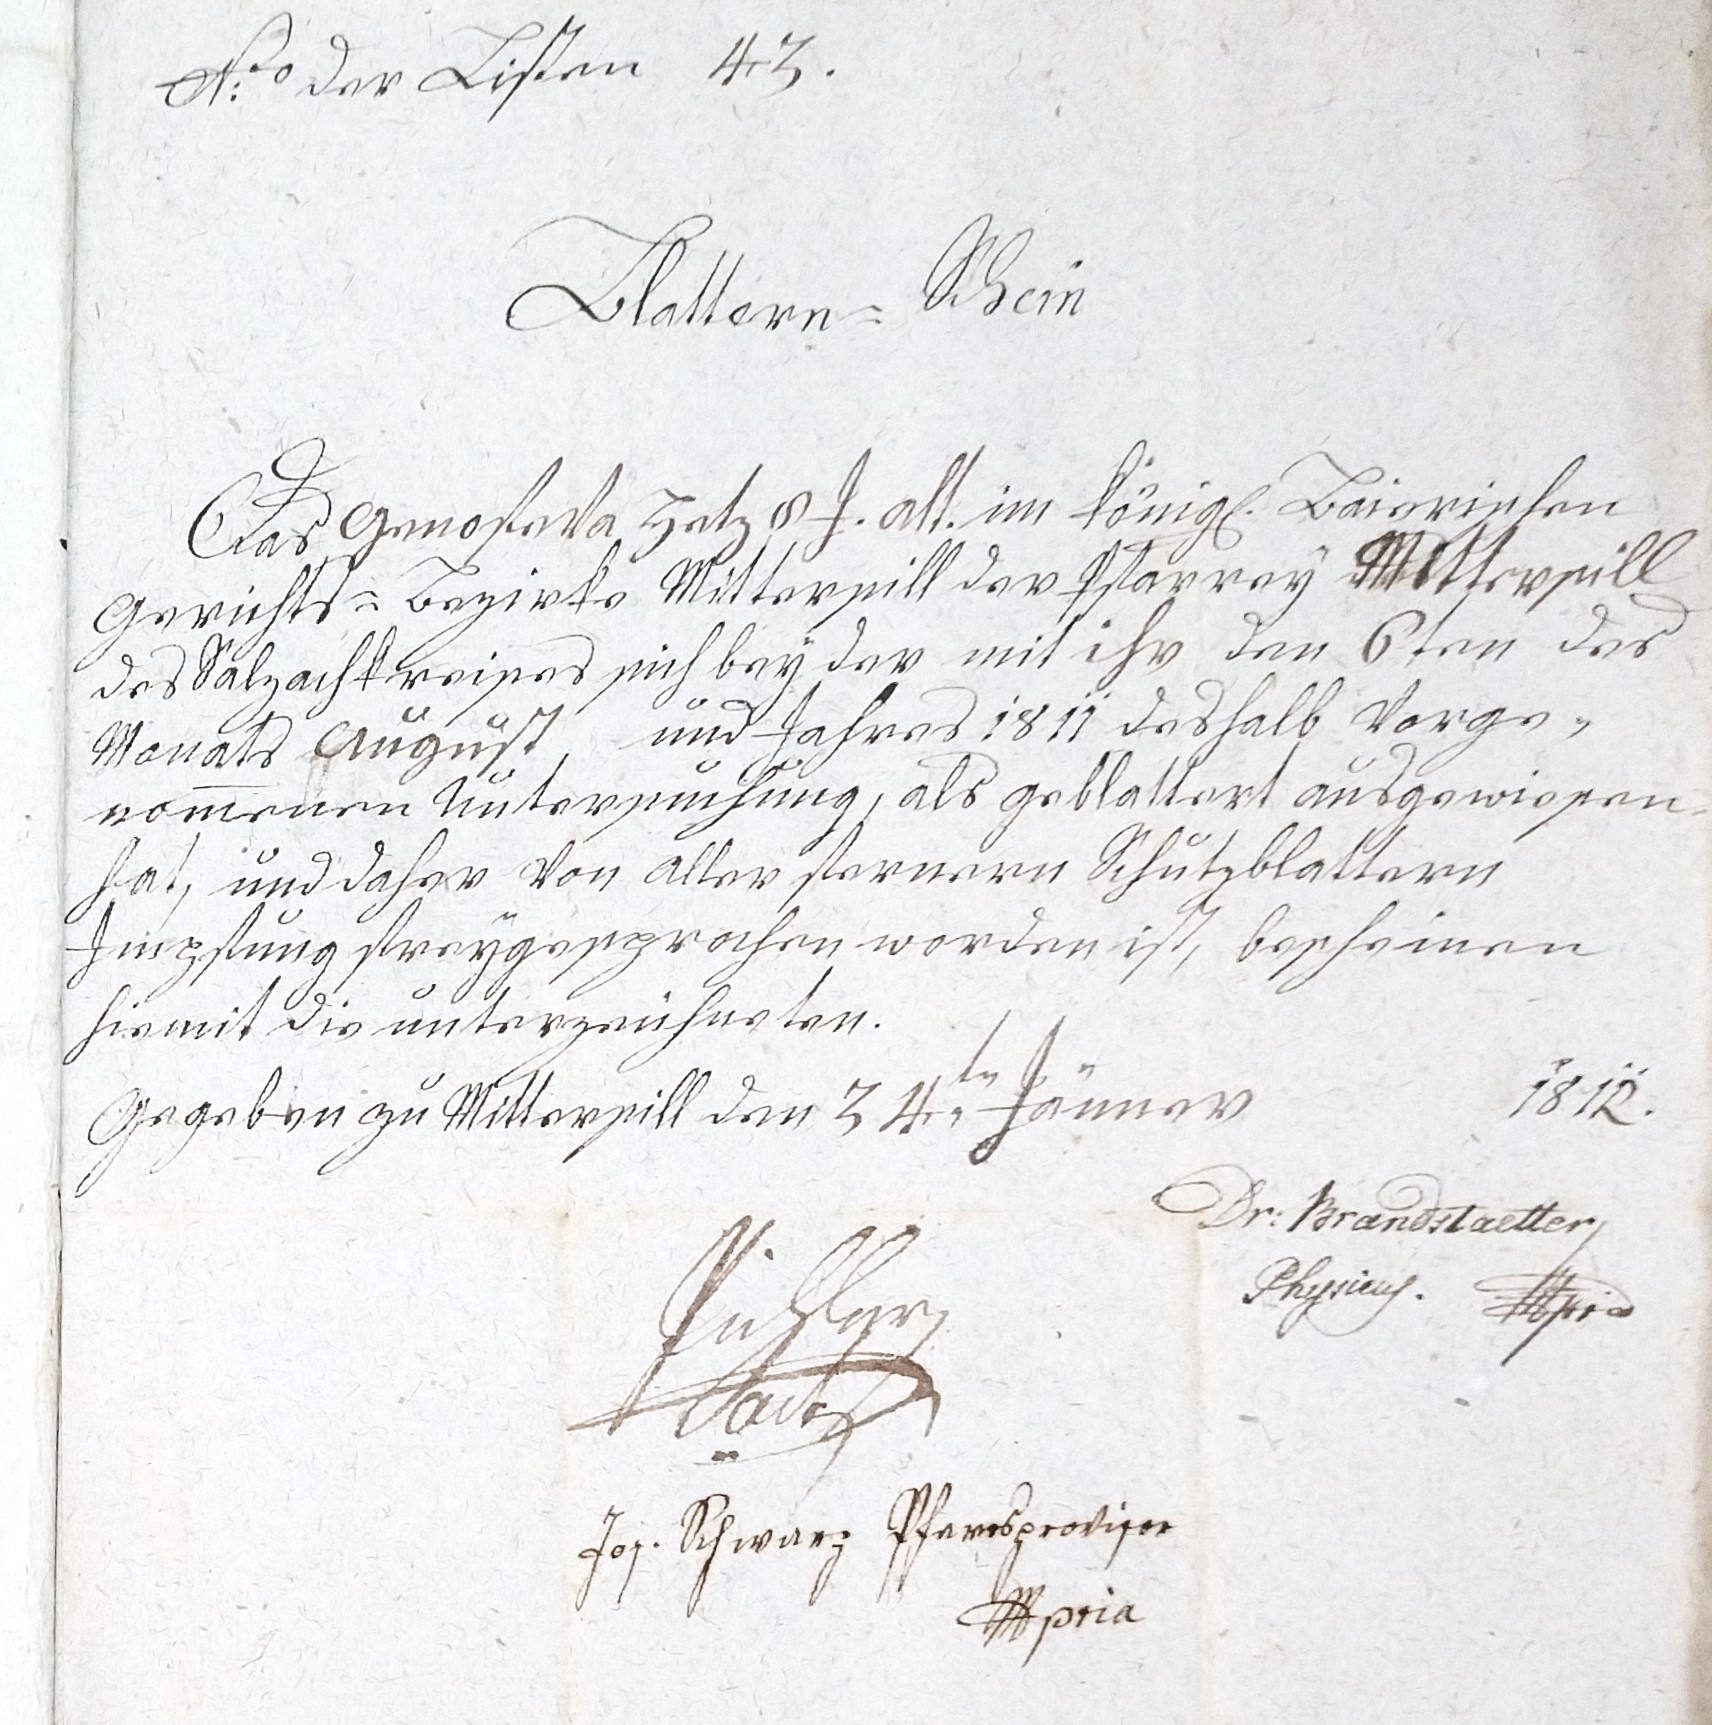 No der Listen 43.
Blattern= Schein
Das Genofeva Hetz 8 J. alt. im königl. Baierischen
Gerichts= Bezirke Mittersill der Pfarrey Mittersill
des Salzachkreises sich bey der mit ihr den 6ten des
Monats August und Jahres 1811 deshalb vorge=
nom̅enen Untersuchung, als geblattert ausgewiesen
hat, und daher von aller fernern Schutzblattern
Impfung freygesprochen worden ist, bescheinen
hiemit die unterzeichneten.
Gegeben zu Mittersill den 24ten Jänner 1812.
Dr: Brandstaetter
Physicus. Mpria
Pichler
Jos. Schwarz Pfarrsprovisor
Mpria